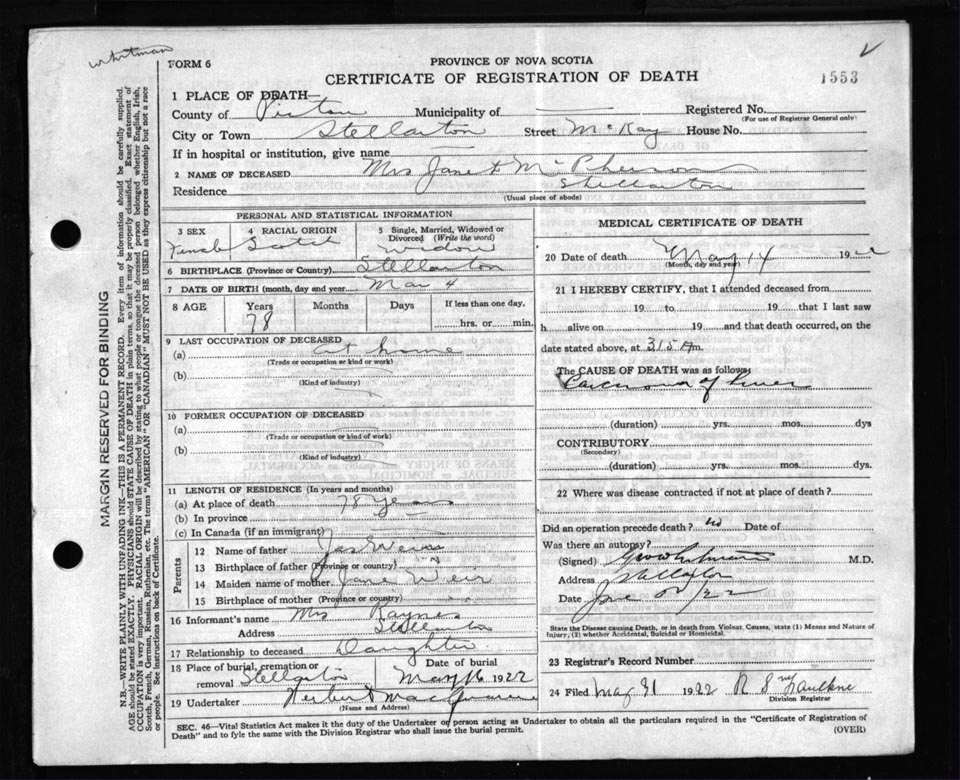 Whitman
FORM 6
PROVINCE OF NOVA SCOTIA
CERTIFICATE OF REGISTRATION OF DEATH
1553
1 PLACE OF DEATH—
County of Pictou Municipality of Registered No.
(For use of Registrar General only)
City or Town Stellarton Street McKay House No.
If in hospital or institution, give name
2 NAME OF DECEASED Mrs Janet McPherson
Residence Stellarton
(Usual place of abode)
PERSONAL AND STATISTICAL INFORMATION
3 SEX Female
4 RACIAL ORIGIN Scotch
5 Single, Married, Widowed or Divorced (Write the word) Widow
6 BIRTHPLACE (Province or Country) Stellarton
7 DATE OF BIRTH (month, day and year) Mar 4
8 AGE Years Months Days If less than one day,
78 hrs. or min.
9 LAST OCCUPATION OF DECEASED
(a) at home
(Trade or occupation or kind of work)
(b)
(Kind of industry)
10 FORMER OCCUPATION OF DECEASED
(a)
(Trade or occupation or kind of work)
(b)
(Kind of industry)
11 LENGTH OF RESIDENCE (In years and months)
(a) At place of death 78 years
(b) In province
(c) In Canada (if an immigrant)
Parents
12 Name of father Jas Weir
13 Birthplace of father (Province or country)
14 Maiden name of mother Jane Weir
15 Birthplace of mother (Province or country)
16 Informant's name Mrs Rayne
Address Stellarton
17 Relationship to deceased Daughter
18 Place of burial, cremation or removal Stellarton Date of burial May 16 1922
19 Undertaker Herbert
(Name and Address)
MEDICAL CERTIFICATE OF DEATH
20 Date of death May 14 192
(Month, day and year)
21 I HEREBY CERTIFY, that I attended deceased from
19 to 19 that I last saw
h alive on 19 and that death occurred, on
date stated above, at 315 Am.
The CAUSE OF DEATH was as follows:
Carcinoma of Liver
(duration) yrs. mos. dys
CONTRIBUTORY
(Secondary)
(duration) yrs. mos. dys.
22 Where was disease contracted if not at place of death?
Did an operation precede death? no Date of
Was there an autopsy?
(Signed) Whitman M.D.
Address Stellarton
Date /22
State the Disease causing Death, or in death from Violent Causes, state (1) Means and Nature of
Injury, (2) whether Accidental, Suicidal or Homicidal.
23 Registrar's Record Number
24 Filed May 31 1922 R S Faulkne
Division Registrar
SEC. 46—Vital Statistics Act makes it the duty of the Undertaker or person acting as Undertaker to obtain all the particulars required in the "Certificate of Registration of
Death" and to fyle the same with the Division Registrar who shall issue the burial permit.
(OVER)
MARGIN RESERVED FOR BINDING
N.B.—WRITE PLAINLY WITH UNFADING INK—THIS IS A PERMANENT RECORD. Every item of information should be carefully supplied.
AGE should be stated EXACTLY. PHYSICIANS should STATE CAUSE OF DEATH in plain terms, so that it may be properly classified. Exact statement of
OCCUPATION is very important. RACIAL ORIGIN will be described by stating to what people or tongue the deceased person belonged whether English, Irish,
Scotch, French, German, Russian, Ruthenian, etc. The terms "AMERICAN" OR "CANADIAN" MUST NOT BE USED as they express citizenship but not a race
or people. See instructions on back of Certificate.